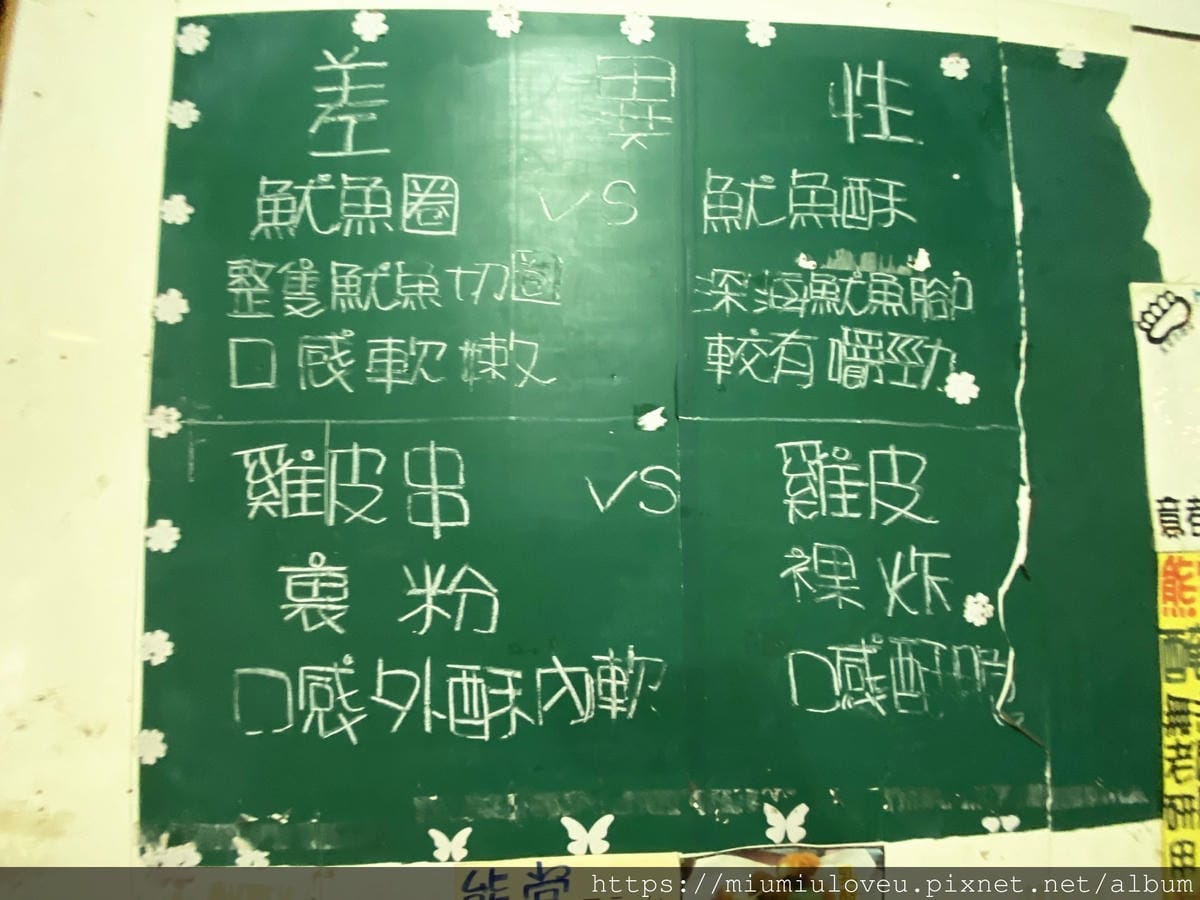 差 異 性
魷魚圈 VS 魷魚酥
整隻魷魚切圈 深海魷魚腳
口感軟嫩 較有嚼勁
雞皮串 VS 雞皮
裹粉 裸炸
口感外酥內軟 口感酥脆
https://miumiuloveu.pixnet.net/album